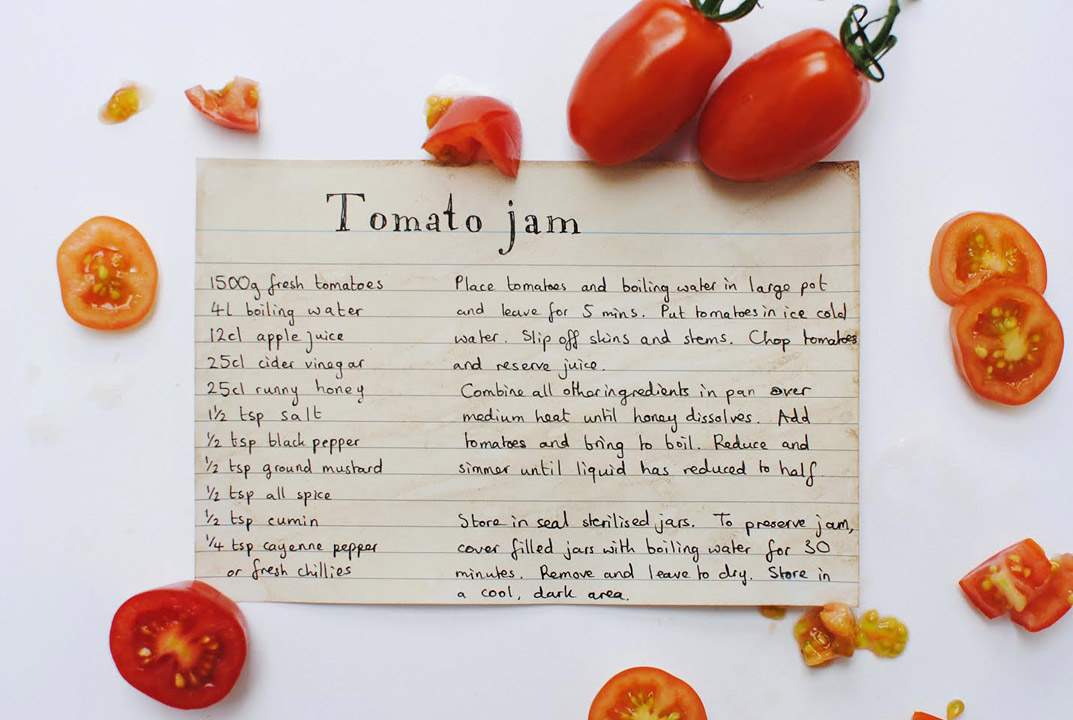 Tomato jam
1500g fresh tomatoes
4l boiling water
12cl apple juice
25cl cider vinegar
25cl runny honey
1½ tsp salt
½ tsp black pepper
½ tsp ground mustard
½ tsp all spice
½ tsp cumin
¼ tsp cayenne pepper
or fresh chillies
Place tomatoes and boiling water in large pot
and leave for 5 mins. Put tomatoes in ice cold
water. Slip off skins and stems. Chop tomatoes
and reserve juice.
Combine all other ingredients in pan over
medium heat until honey dissolves. Add
tomatoes and bring to boil. Reduce and
simmer until liquid has reduced to half.
Store in seal sterilised jars. To preserve jam,
cover filled jars with boiling water for 30
minutes. Remove and leave to dry. Store in
a cool, dark area.